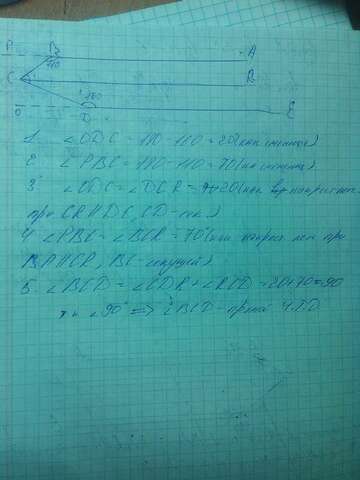 P B A
110
C R
160
O D E
1. ∠ODC = 180-160 = 20 (как смежные)
2. ∠PBC = 180-110 = 70 (как смежные)
3. ∠ODC = ∠DCR = 20 (как накрест леж
при CR II DE, CD - сек.)
4. ∠PBC = ∠BCR = 70° (как накрест леж при
BP II CR, BC - секущей)
5. ∠BCD = ∠CDR + ∠RCD = 20+70=90
т.к ∠90° => ∠BCD - прямой Ч.Т.Д